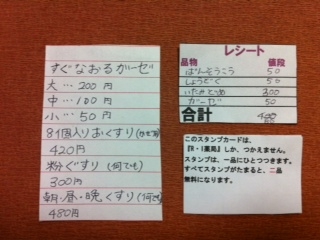 すぐなおるガーゼ
大…200円
中…100円
小…50円
81個入りおくすり
420円
粉ぐすり(何でも)
300円
朝・昼・晩くすり(何でも)
480円
レシート
品物 値段
ばんそうこう 50
しょうどく 50
いたみどめ 300
ガーゼ 50
合計
このスタンプカードは、
『R・I薬局』しか、つかえません。
スタンプは、一品にひとつつきます。
すべてスタンプがたまると、二品
無料になります。